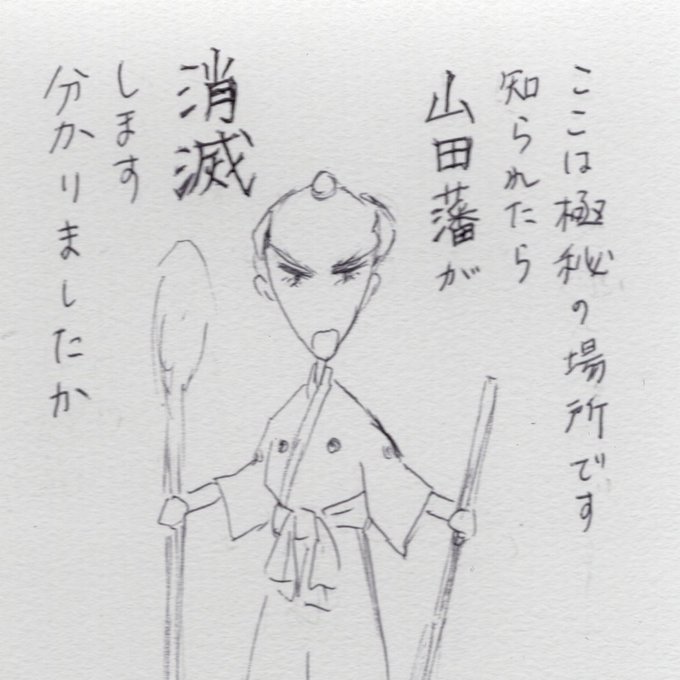 ここは極秘の場所です
知られたら
山田藩が
消滅
します
分かりましたか